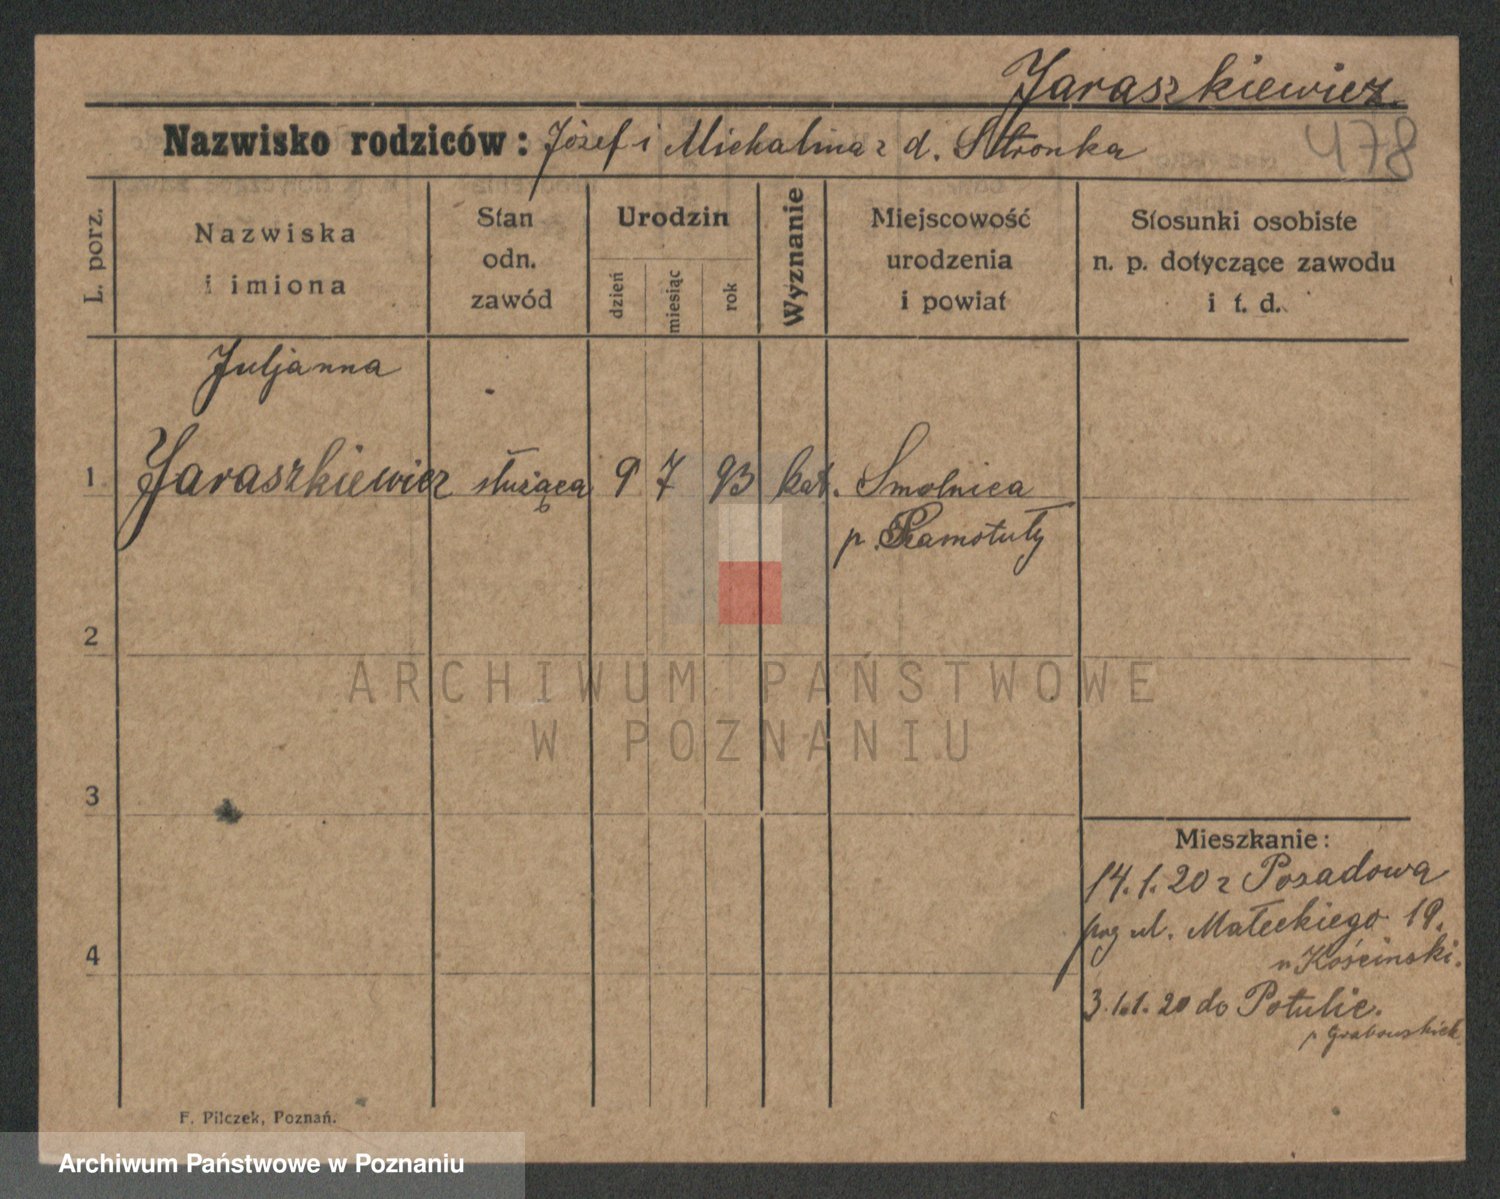 Jaraszkiewicz
478
Nazwisko rodziców: Józef i Michalina z d. Stronka
L. porz.
Nazwiska
i imiona
Stan
odn.
zawód
Urodzin
dzień
miesiąc
rok
Wyznanie
Miejscowość
urodzenia
i powiat
Stosunki osobiste
n. p. dotyczące zawodu
i t. d.
Juljanna
1 Jaraszkiewicz służąca 9 7 93 kat. Smolnica
p. Szamotuły
2
ARCHIWUM PAŃSTWOWE
W POZNANIU
3
Mieszkanie:
14.1.20 z Posadowa
ul. Małeckiego 19.
Kościnski.
3.11.20 do Potulic.
4
F. Pilczek, Poznań.
Archiwum Państwowe w Poznaniu